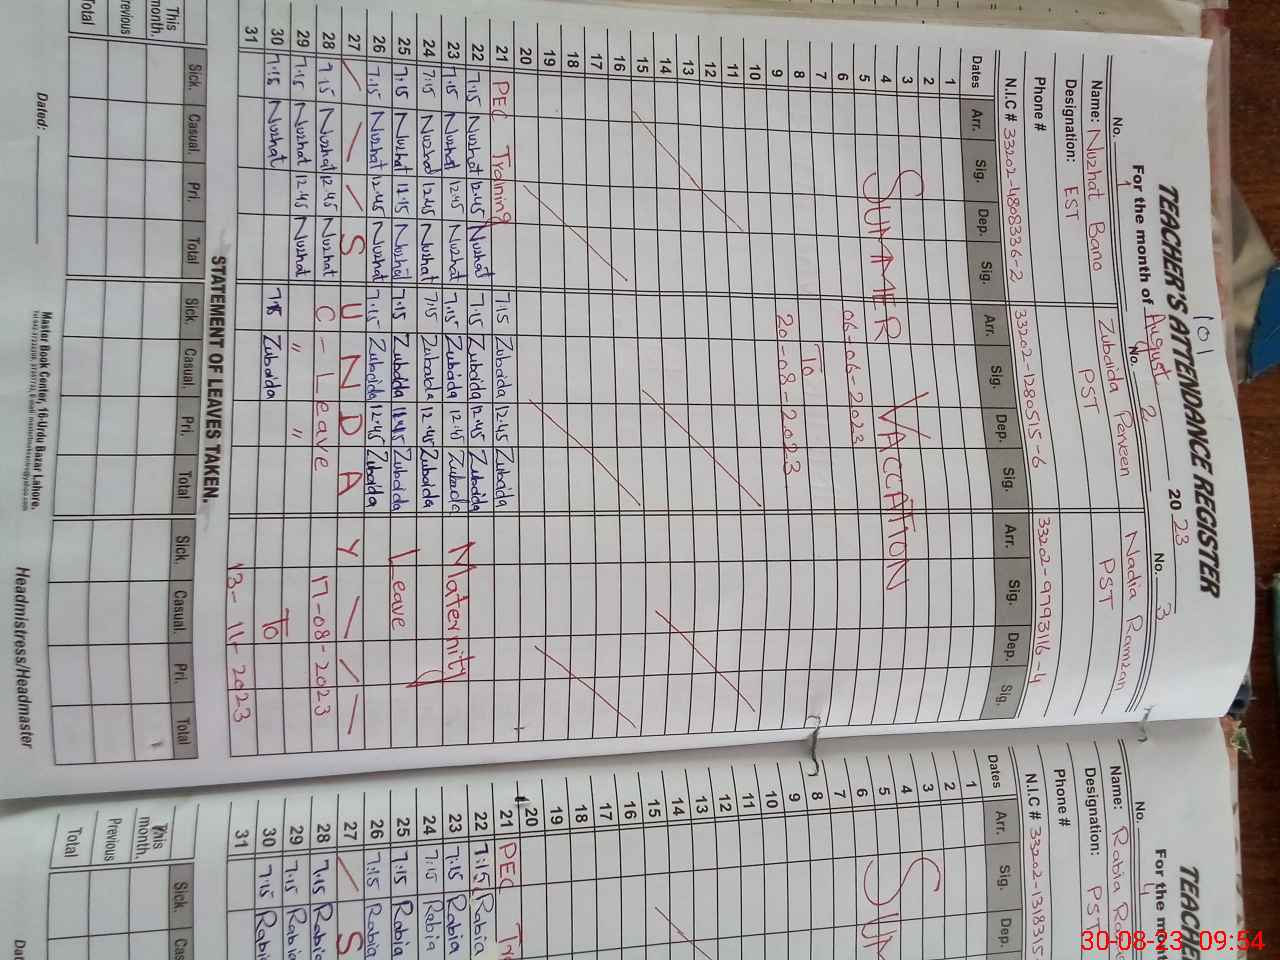 101
TEACHER'S ATTENDANCE REGISTER
For the month of August 2023
No. 1 No. 2 No. 3
Name: Nuzhat Bano Zubaida Parveen Nadia Ramzan
Designation: EST PST PST
Phone #
N.I.C # 33202-4808336-2 33202-1280515-6 33202-9993116-4
Dates Arr. Sig. Dep. Sig. Arr. Sig. Dep. Sig. Arr. Sig. Dep. Sig.
1
2
3
4 SUMMER VACCATION
5
6 06-06-2023
7
8 To
9 20-08-2023
10
11
12
13
14
15
16
17
18
19
20
21 PEC Training 7:15 Zubaida 12:45 Zubaida
22 7:15 Nuzhat 12:45 Nuzhat 7:15 Zubaida 12:45 Zubaida
23 7:15 Nuzhat 12:45 Nuzhat 7:15 Zubaida 12:45 Zubaida Maternity
24 7:15 Nuzhat 12:45 Nuzhat 7:15 Zubaida 12:45 Zubaida
25 7:15 Nuzhat 11:15 Nuzhat 7:15 Zubaida Zubaida Leave
26 7:15 Nuzhat 12:45 Nuzhat 7:15 Zubaida 12:45 Zubaida
27 SUNDAY
28 7:15 Nuzhat 12:45 Nuzhat C-Leave 17-08-2023
29 7:15 Nuzhat 12:45 Nuzhat " "
30 7:15 Nuzhat 7:15 Zubaida To
31 13-11-2023
STATEMENT OF LEAVES TAKEN.
Sick. Casual. Pri. Total Sick. Casual. Pri. Total Sick. Casual. Pri. Total
This month.
Previous
Total
Dated:
Master Book Center, 16-Urdu Bazar Lahore.
Headmistress/Headmaster
TEACHE
For the mont
No. 4
Name: Rabia
Designation: PST
Phone #
N.I.C # 33202-1318315-
Dates Arr. Sig. Dep.
1
2
3
4 SUM
5
6
7
8
9
10
11
12
13
14
15
16
17
18
19
20
21 PEC Tr
22 7:15 Rabia
23 7:15 Rabia
24 7:15 Rabia
25 7:15 Rabia
26 7:15 Rabia
27 S
28 7:15 Rabia
29 7:15 Rabia
30 7:15 Rabia
31
Sick.
This month.
Previous
Total
30-08-23 09:54